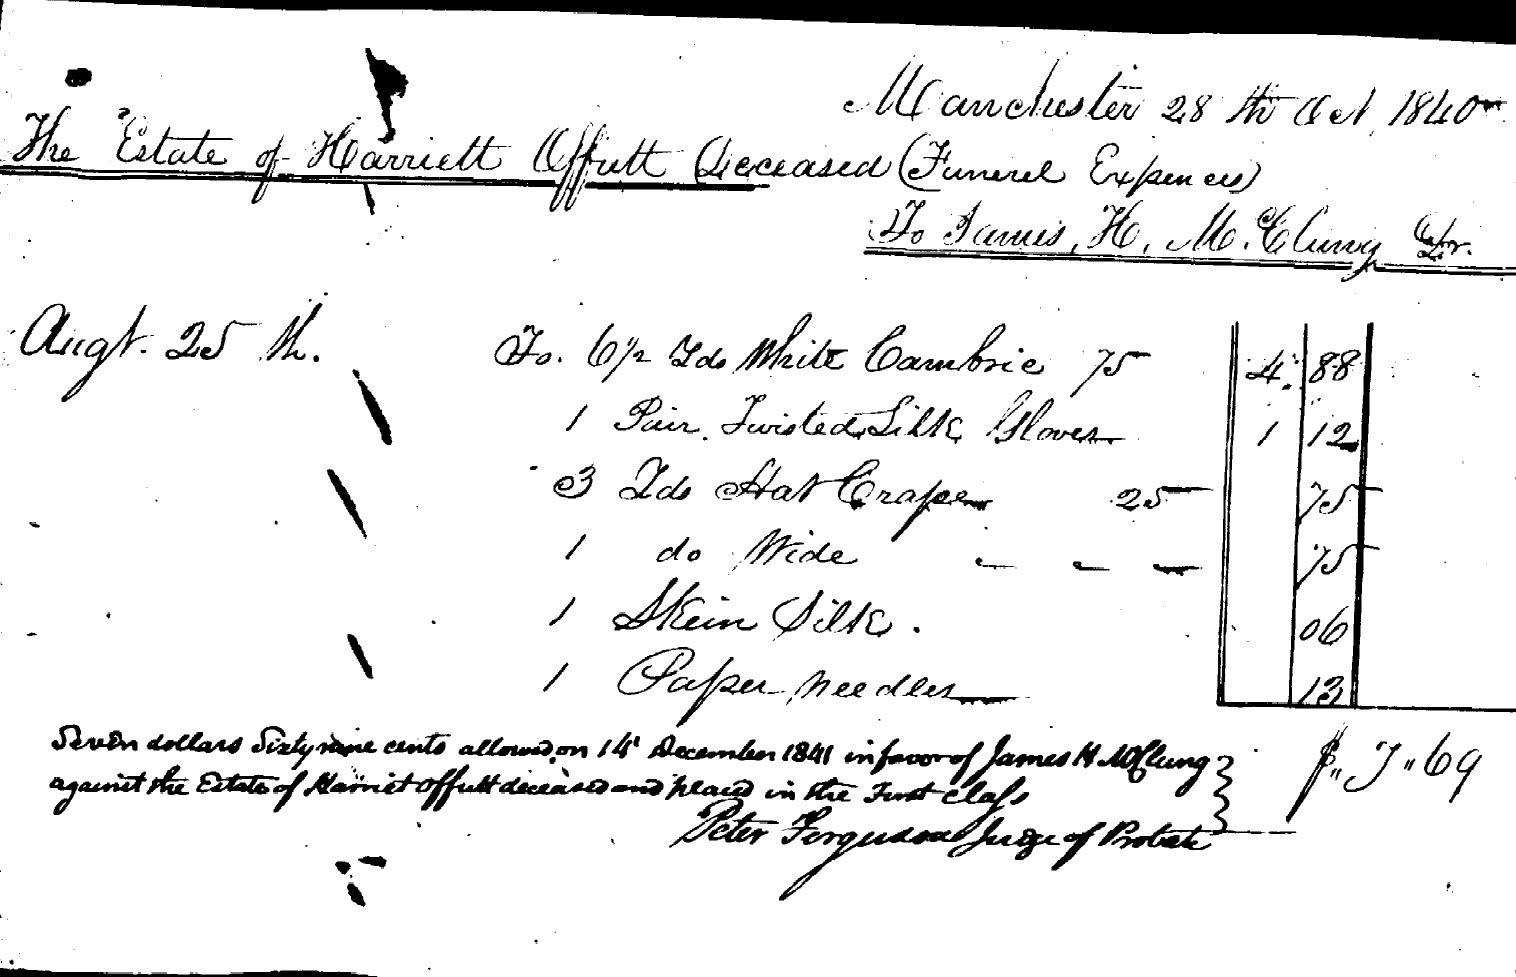 Manchester 28th Oct 1840
The Estate of Harriett Offutt Deceased (Funerel Expences)
To James. H. McClung Dr.
Augt. 25th. To. 6½ Yds White Cambric 75 4. 88
1 Pair Twisted Silk Gloves 1 12
3 Yds Hat Crape 25 75
1 do Wide 75
1 Skein Silk. 06
1 Paper Needles 13
Seven dollars Sixty nine cents allowed on 14 December 1841 in favor of James H McClung
against the Estate of Harriet Offutt deceased and placed in the First Class
$ 7 " 69
Peter Ferguson Judge of Probate